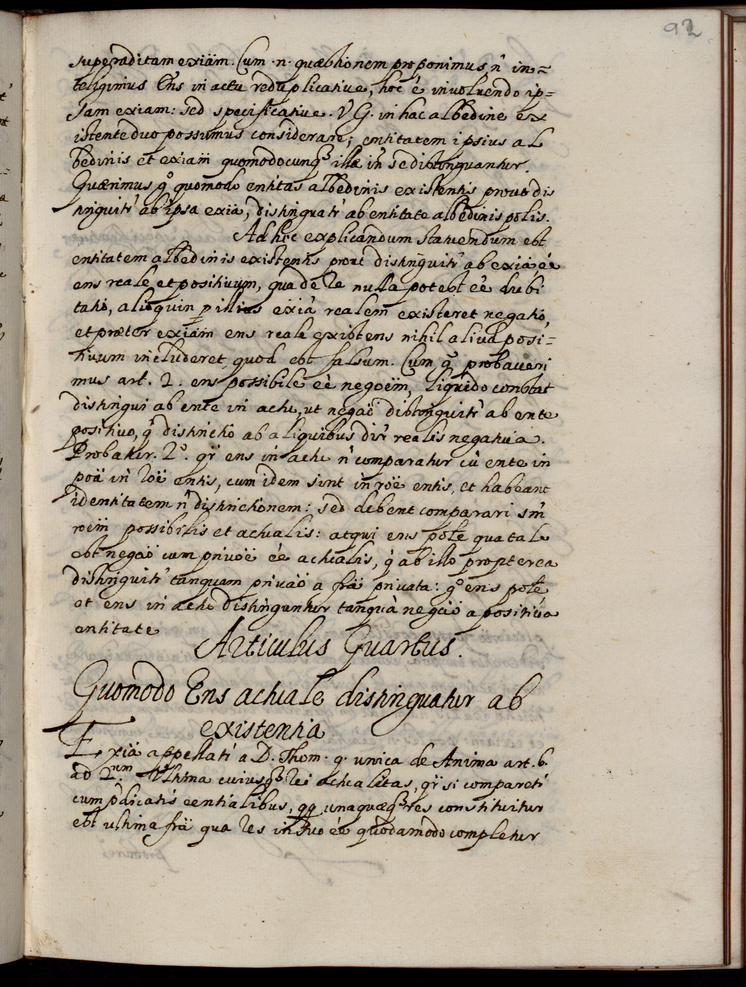 92
superaditam exiãm. Cum .n. quæstionem proponimus ñ in=
teligimus Ens in actu reduplicative, hoc é involvendo ip-
sam exiam: sed specificative. V.G. in hac albedine ex
istente duo possumus considerare; entitatem ipsius al
bedinis et exiam quomodocunqʒ illæ in se distinguantur.
Quærimus gº quomodo entitas albedinis existentis prout dis
tinguitr ab ipsa exiã, distinguatr ab entitate albedinis poßis.
Ad hoc explicandum statuendum est
entitatem albedinis existentis prout distinguitr ab exiã éé
ens reale et positivum, qua de re nulla potest éé dubi
tatio, alioquin p illius exiã realem existeret negatio
et præter exiãm ens reale existens nihil aliud posi=
tivum includeret, quod est falsum. Cum gº probaveri
mus art. 2. ens possibile éé negoẽm, liquido constat
distingui ab ente in actu, ut negaõ distinguitr ab ente
positivo, gº distinctio ab aliquibus disr realis negativa.
Probatur. 2º. qr̃ ens in actu ñ comparatur cũ ente in
poã in roẽ entis, cum idem sint in roẽ entis, et habeant
identitatem ñ distinctionem: sed debent comparari sm̃
roẽm possibilis et actualis: atqui ens poße qua tale
est negaõ cum privõe éé actualis, gº ab illo propterea
distinguitr tanquam privaõ a frã privata: gº ens poße
et ens in actu distinguntur tanquã negaõ a positiva
entitate
Articulus Quartus.
Quomodo Ens actuale distinguatur ab
existentia
Exiã appellatr a D. Thom. q. unica de Anima art. 6.
ad 2.um Ultima cuiusqʒ rei actualitas, qr̃ si comparetr
cum pdicatis eentialibus, qq unaquæqʒ res constituitur
est ultima frã qua res in suo éé quodamodo completur